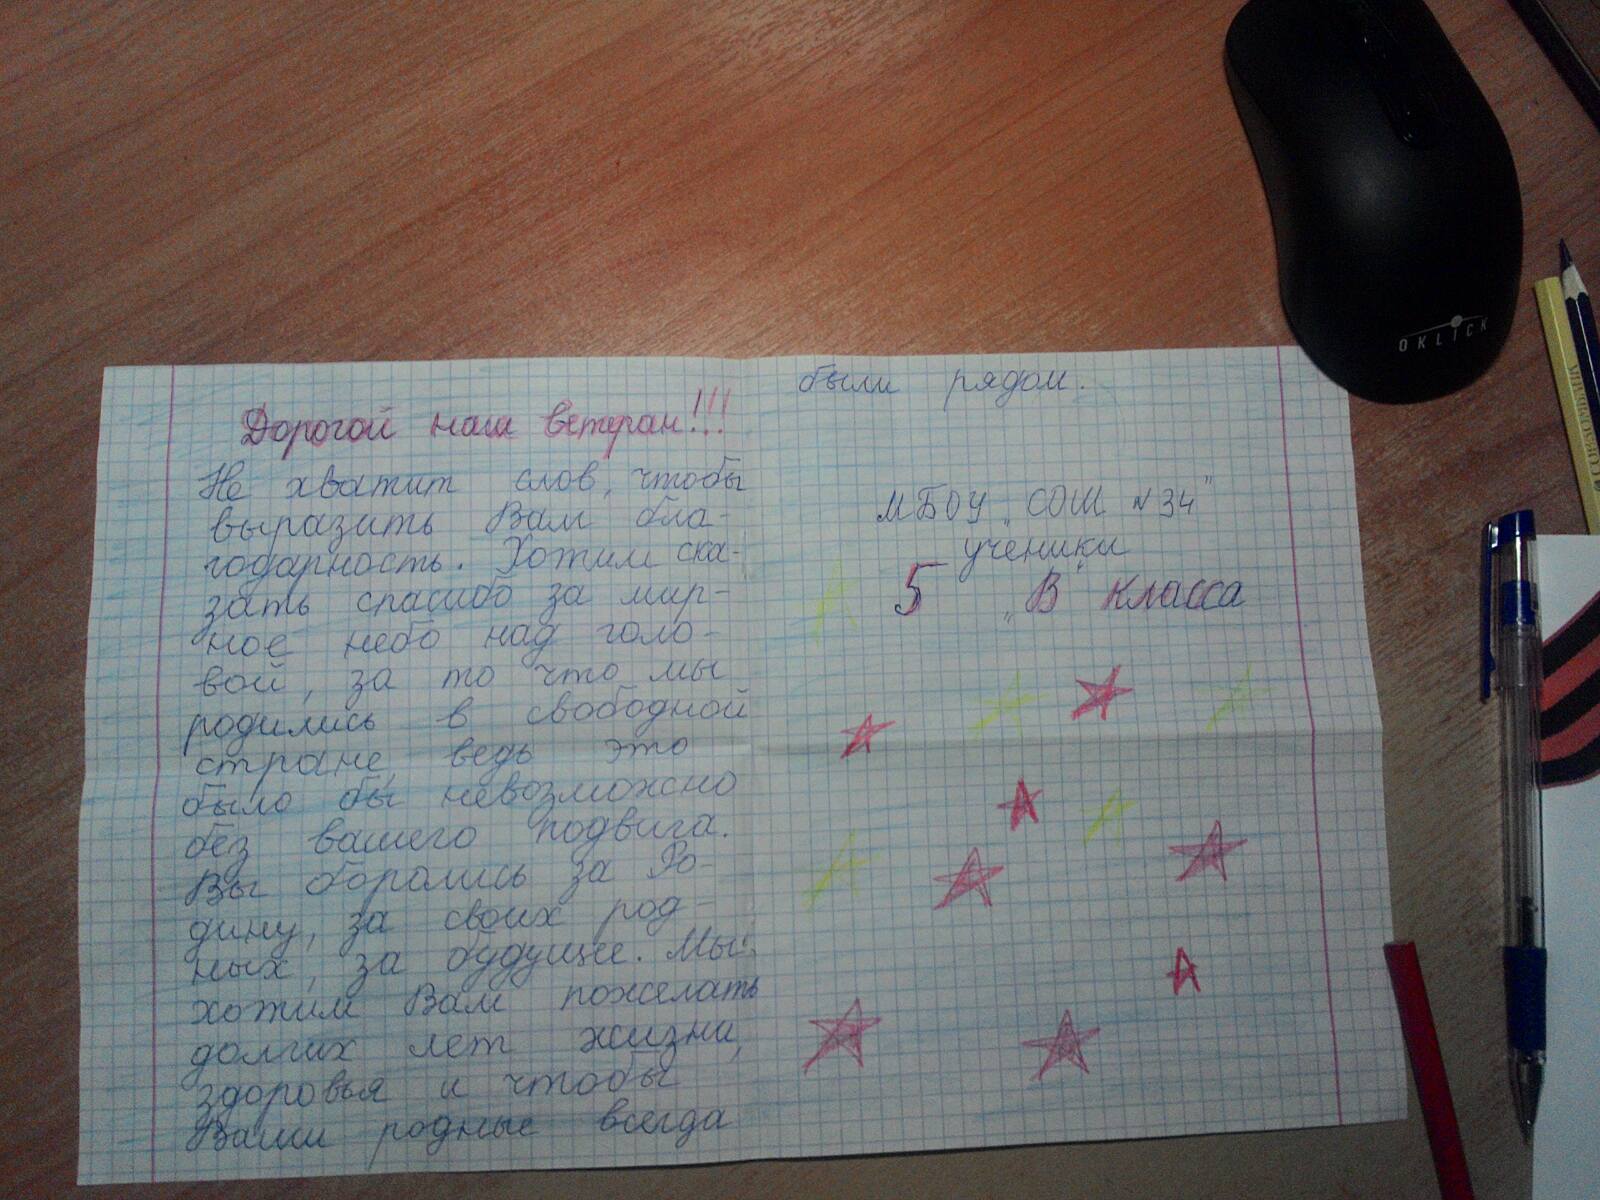 Дорогой наш ветеран!!!
Не хватит слов, чтобы
выразить Вам бла-
годарность. Хотим ска-
зать спасибо за мир-
ное небо над голо-
вой, за то что мы
родились в свободной
стране ведь это
было бы невозможно
без вашего подвига.
Вы боролись за Ро-
дину, за своих род-
ных, за будущее. Мы
хотим Вам пожелать
долгих лет жизни,
здоровья и чтобы
Ваши родные всегда
были рядом.
МБОУ „СОШ №34"
ученики
5 „В" класса
OKLICK